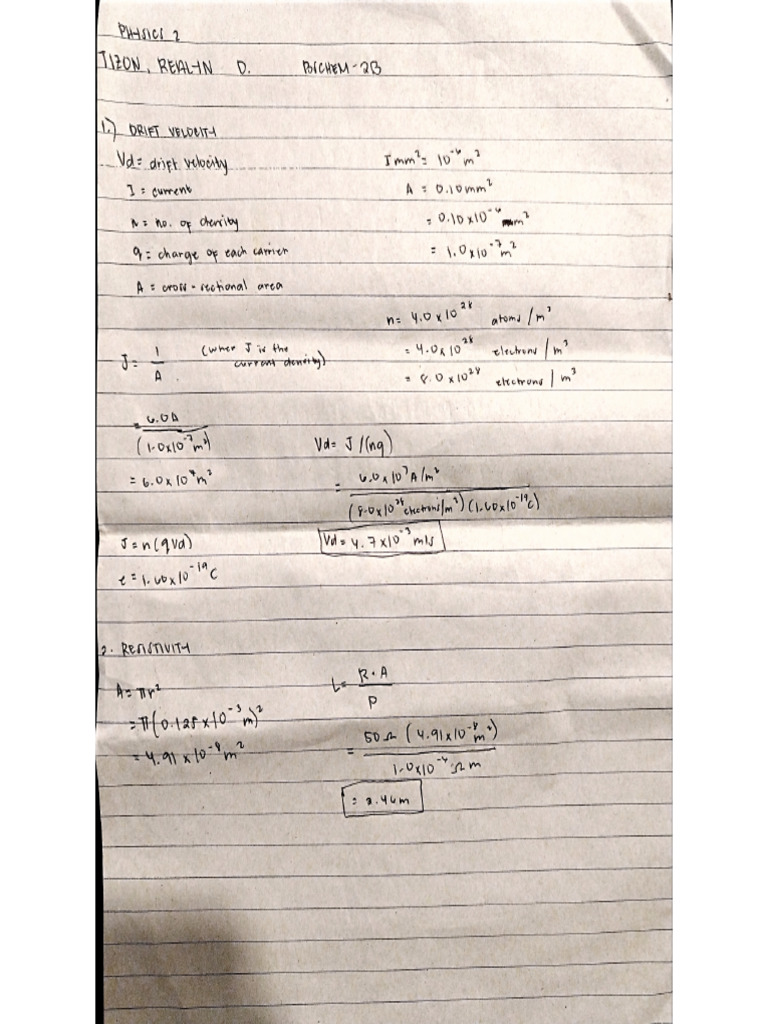 PHYSICS 2
TIZON, REALYN D. BSCHEM-2B
1.) DRIFT VELOCITY
Vd = drift velocity
I = current
n = no. of density
q = charge of each carrier
A = cross-sectional area
1mm² = 10⁻⁶ m²
A = 0.10mm²
= 0.10x10⁻⁶ m²
= 1.0x10⁻⁷ m²
n = 4.0x10²⁸ atoms/m³
= 4.0x10²⁸ electrons/m³
= 8.0x10²⁸ electrons/m³
J = I / A (when J is the current density)
= 6.0A / (1.0x10⁻⁷m²)
= 6.0x10⁷ m²
J = n(qVd)
e = 1.60x10⁻¹⁹C
Vd = J/(nq)
= 6.0x10⁷ A/m² / (8.0x10²⁸ electrons/m³)(1.60x10⁻¹⁹C)
Vd = 4.7x10⁻³ m/s
2. RESISTIVITY
A = πr²
= π(0.125x10⁻³m)²
= 4.91x10⁻⁸ m²
L = R·A / P
= 50Ω (4.91x10⁻⁸m²) / 1.0x10⁻⁶ Ωm
= 2.46m